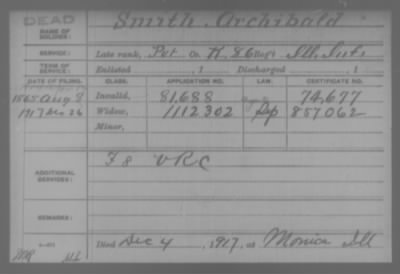 DEAD
NAME OF SOLDIER: Smith, Archibald
SERVICE: Late rank, Pvt Co. K, 86 Regt Ill. Inf.
TERM OF SERVICE: Enlisted , 1 Discharged , 1
DATE OF FILING. CLASS. APPLICATION NO. LAW. CERTIFICATE NO.
1865 Aug 8 Invalid, 81,688 74,677
1917 Dec 26 Widow, 1112302 857062
Minor,
ADDITIONAL SERVICES: F 8 VRC
REMARKS:
Died Dec 4, 1917, at Monica Ill